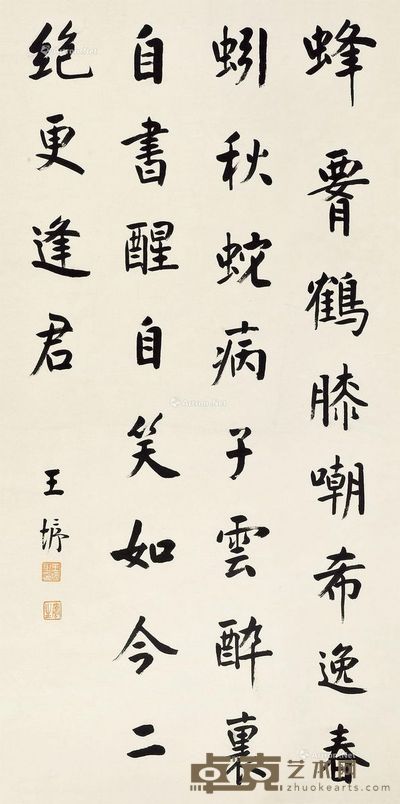 蜂腰鶴膝嘲希逸春
蚓秋蛇病子雲醉裏
自書醒自笑如今二
絶更逢君
王垿
卓克艺术网
zhuokearts.com